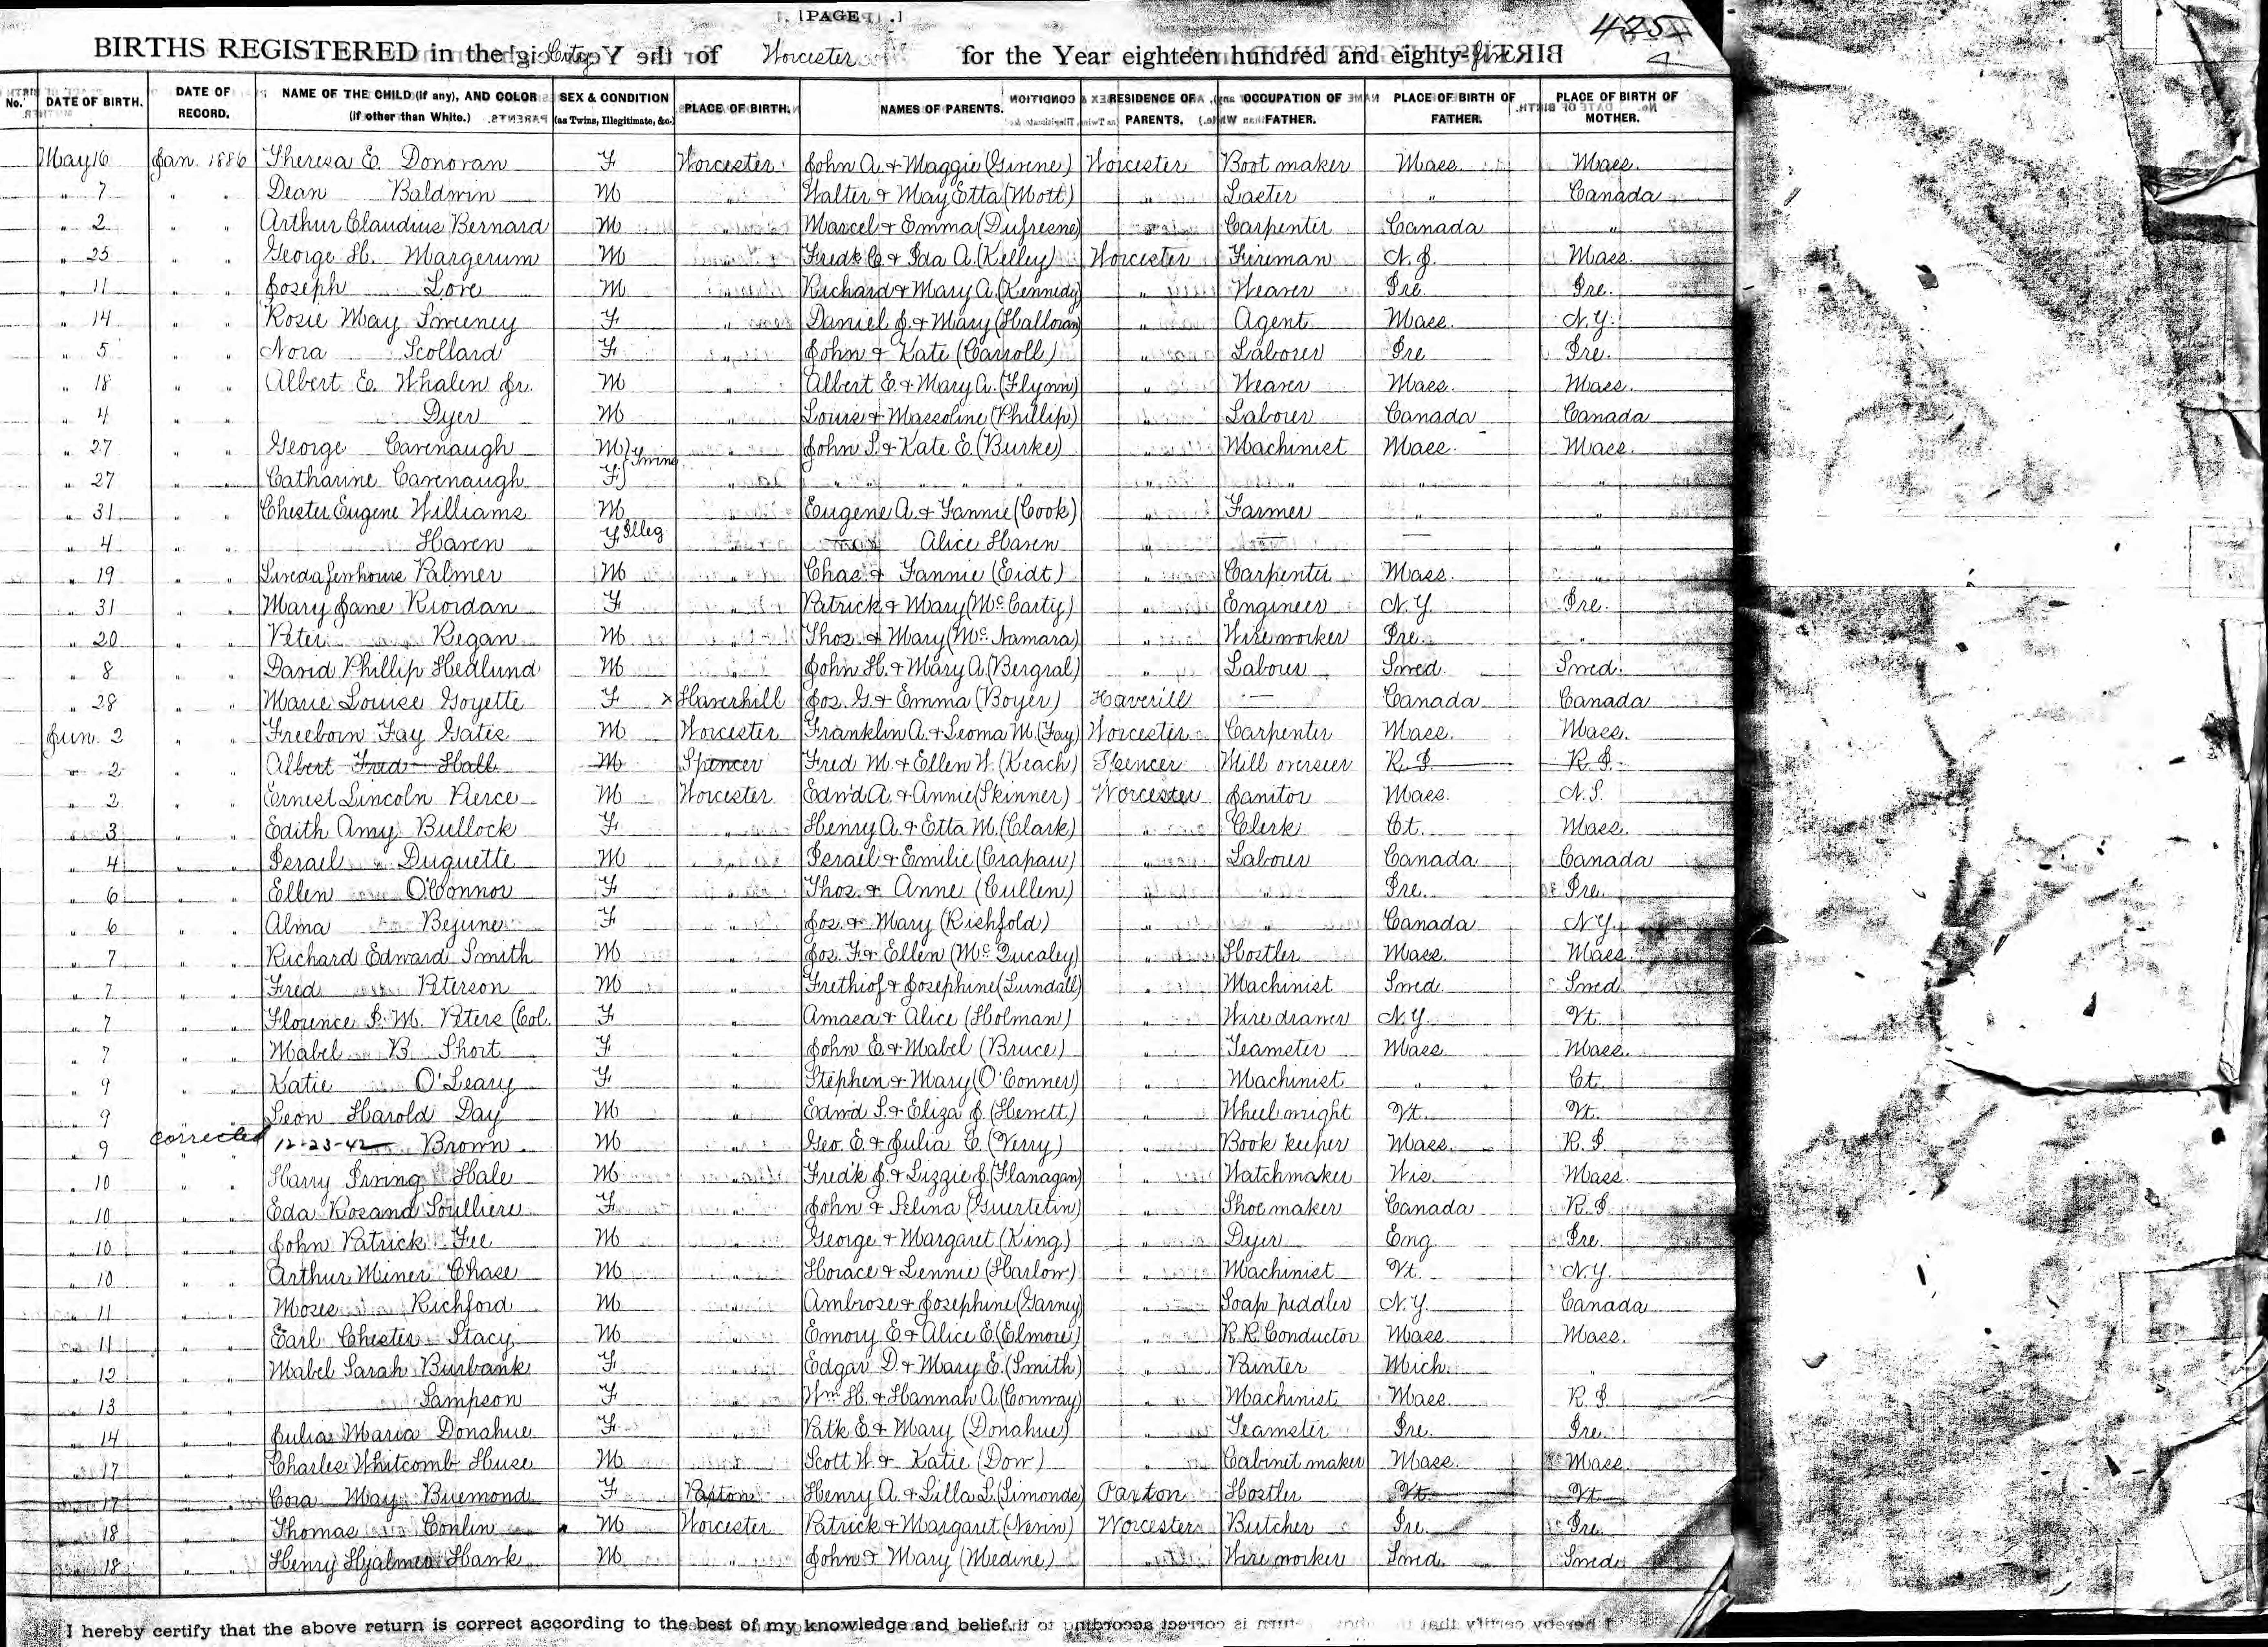 PAGE
425
BIRTHS REGISTERED in the City of Worcester for the Year eighteen hundred and eighty-five
No. DATE OF BIRTH. DATE OF RECORD. NAME OF THE CHILD (if any), AND COLOR (if other than White.) SEX & CONDITION (as Twins, Illegitimate, &c.) PLACE OF BIRTH. NAMES OF PARENTS. RESIDENCE OF PARENTS. OCCUPATION OF FATHER. PLACE OF BIRTH OF FATHER. PLACE OF BIRTH OF MOTHER.
May 16 Jan. 1886 Theresa E. Donovan F Worcester John A. & Maggie Worcester Boot maker Mass. Mass.
" 7 " " Dean Baldwin M " Walter & May Etta (Mott) " Laster " Canada
" 2 " " Arthur Claudius Bernard M " Marcel & Emma (Dufresne) " Carpenter Canada "
" 25 " " George H. Margerum M " Fredk C. & Ida A. (Kelley) Worcester Fireman N.J. Mass.
" 11 " " Joseph Love M " Richard & Mary A. (Kennedy) " Weaver Ire. Ire.
" 14 " " Rosie May Sweeney F " Daniel J. & Mary (Halloran) " Agent Mass. N.Y.
" 5 " " Nora Scollard F " John & Kate (Carroll) " Laborer Ire Ire.
" 18 " " Albert E. Whalen Jr. M " Albert E. & Mary A. (Flynn) " Weaver Mass. Mass.
" 4 " " Dyer M " Louis & Massoline (Phillip) " Laborer Canada Canada
" 27 " " George Cavenaugh M Twins " John S. & Kate E. (Burke) " Machinist Mass. Mass.
" 27 " " Catharine Cavenaugh F " " " " " " " " "
" 31 " " Chester Eugene Williams M " Eugene A. & Fannie (Cook) " Farmer " "
" 4 " " Haven F Illeg " Alice Haven " — — "
" 19 " " Palmer M " Chas. & Fannie (Eidt) " Carpenter Mass. "
" 31 " " Mary Jane Riordan F " Patrick & Mary (McCarty) " Engineer N.Y. Ire.
" 20 " " Peter Regan M " Thos. & Mary (McNamara) " Wire worker Ire. "
" 8 " " David Phillip Hedlund M " John H. & Mary A. (Bergral) " Laborer Swed. Swed.
" 28 " " Marie Louise Goyette F x Haverhill Jos. G. & Emma (Boyer) Haverill — Canada Canada
Jun. 2 " " Freeborn Fay Gates M Worcester Franklin A. & Leoma M. (Fay) Worcester Carpenter Mass. Mass.
" 2 " " Albert Fred Hall M Spencer Fred M. & Ellen W. (Keach) Spencer Mill overseer R.I. R.I.
" 2 " " Ernest Lincoln Pierce M Worcester Edwd A. & Annie (Skinner) Worcester Janitor Mass. N.S.
" 3 " " Edith Amy Bullock F " Henry A. & Etta M. (Clark) " Clerk Ct. Mass.
" 4 " " Israel Duquette M " Israel & Emilie (Crapau) " Laborer Canada Canada
" 6 " " Ellen O'Connor F " Thos. & Anne (Cullen) " " Ire. Ire.
" 6 " " Alma Bejune F " Jos. & Mary (Richfold) " " Canada N.Y.
" 7 " " Richard Edward Smith M " Jos. F. & Ellen " Hostler Mass. Mass.
" 7 " " Fred Peterson M " Frethiof & Josephine (Lundall) " Machinist Swed. Swed.
" 7 " " Florence I. M. Peters (Col. F " Amasa & Alice (Holman) " Wire drawer N.Y. Vt.
" 7 " " Mabel B. Short F " John E. & Mabel (Bruce) " Teamster Mass. Mass.
" 9 " " Katie O'Leary F " Stephen & Mary (O'Conner) " Machinist " Ct.
" 9 " " Leon Harold Day M " Edwd S. & Eliza J. (Hewett) " Wheelwright Vt. Vt.
" 9 corrected 12-23-42 Brown M " Geo. E. & Julia E. (Verry) " Book keeper Mass. R.I.
" 10 " " Harry Irving Hale M " Fredk J. & Lizzie J. (Flanagan) " Watchmaker Wis. Mass.
" 10 " " Eda Rosanna Soulliere F " John & Selina (Guertetin) " Shoemaker Canada R.I.
" 10 " " John Patrick Fee M " George & Margaret (King) " Dyer Eng. Ire.
" 10 " " Arthur Miner Chase M " Horace & Lennie (Harlow) " Machinist Vt. N.Y.
" 11 " " Moses Richford M " Ambrose & Josephine (Garney) " Soap peddler N.Y. Canada
" 11 " " Earl Chester Stacy M " Emory E. & Alice E. (Elmore) " R.R. Conductor Mass. Mass.
" 12 " " Mabel Sarah Burbank F " Edgar D. & Mary E. (Smith) " Painter Mich. "
" 13 " " Sampson F " Wm. H. & Hannah A. (Conway) " Machinist Mass. R.I.
" 14 " " Julia Maria Donahue F " Patk E. & Mary (Donahue) " Teamster Ire. Ire.
" 17 " " Charles Whitcomb Huse M " Scott W. & Katie (Dow) " Cabinet maker Mass. Mass.
" 17 " " Cora May Buemond F Paxton Henry A. & Lilla L. (Simonds) Paxton Hostler Vt. Vt.
" 18 " " Thomas Conlin M Worcester Patrick & Margaret (Nevin) Worcester Butcher Ire. Ire.
" 18 " " Henry Hjalmer Hank M " John & Mary (Medine) " Wire worker Swed. Swed.
I hereby certify that the above return is correct according to the best of my knowledge and belief.